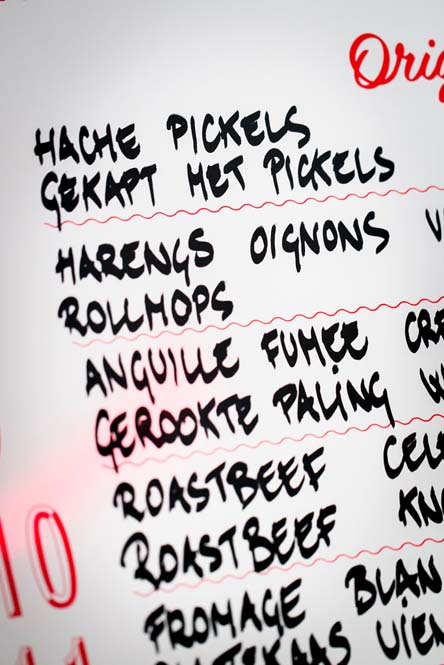 Orig
HACHE PICKELS
GEKAPT MET PICKELS
HARENGS OIGNONS V
ROLLMOPS
ANGUILLE FUMEE CRE
GEROOKTE PALING W
ROASTBEEF CELE
ROASTBEEF KNO
10
FROMAGE BLAN
UIEN